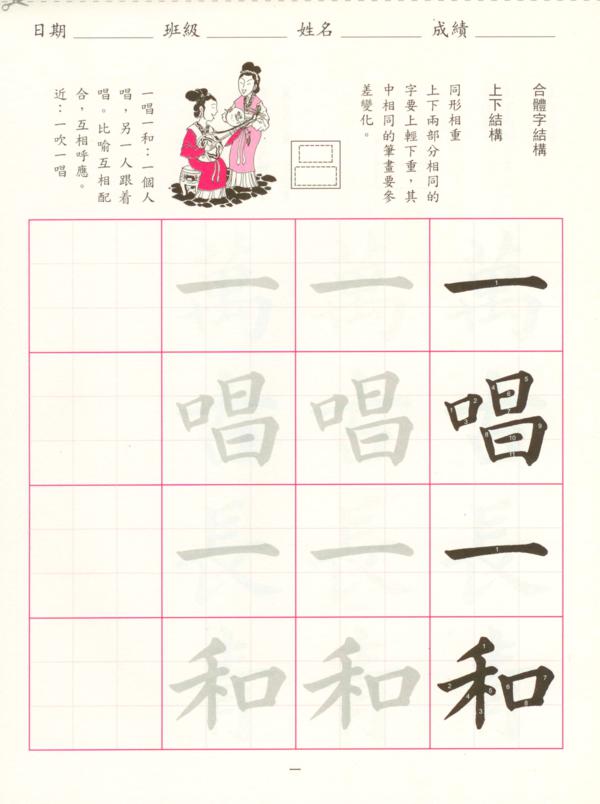 日期 班級 姓名 成績
合體字結構
上下結構
同形相重
上下兩部分相同的
字要上輕下重，其
中相同的筆畫要參
差變化。
一唱一和：一個人
唱，另一人跟着
唱。比喻互相配
合，互相呼應。
近：一吹一唱
一 一 一
唱 唱 唱
一 一 一
和 和 和
一